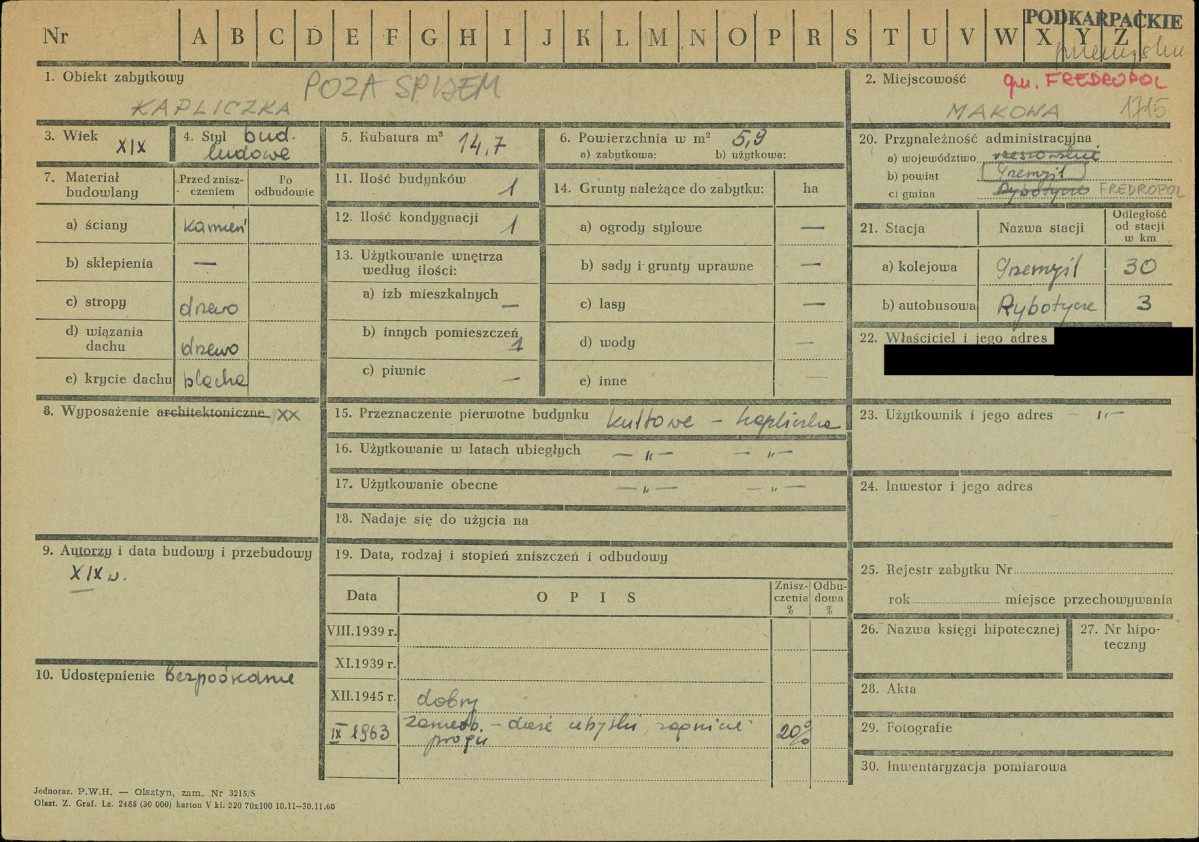 Nr A B C D E F G H I J K L M N O P R S T U V W X Y Z
PODKARPACKIE
1. Obiekt zabytkowy
POZA SPISEM
KAPLICZKA
2. Miejscowość
gm. FREDROPOL
MAKOWA 1715
3. Wiek XIX
4. Styl bud.
ludowe
5. Kubatura m³ 14,7
6. Powierzchnia w m² 5,9
a) zabytkowa: b) użytkowa:
7. Materiał
budowlany
Przed znisz-
czeniem
Po
odbudowie
a) ściany kamień
b) sklepienia —
c) stropy drzewo
d) wiązania
dachu drzewo
e) krycie dachu blacha
8. Wyposażenie architektoniczne XX
9. Autorzy i data budowy i przebudowy
XIX w.
10. Udostępnienie bezpośrednie
11. Ilość budynków 1
12. Ilość kondygnacji 1
13. Użytkowanie wnętrza
według ilości:
a) izb mieszkalnych —
b) innych pomieszczeń 1
c) piwnic —
14. Grunty należące do zabytku: ha
a) ogrody stylowe —
b) sady i grunty uprawne —
c) lasy —
d) wody —
e) inne —
15. Przeznaczenie pierwotne budynku kultowe - kapliczka
16. Użytkowanie w latach ubiegłych — „ — — „ —
17. Użytkowanie obecne — „ — — „ —
18. Nadaje się do użycia na
19. Data, rodzaj i stopień zniszczeń i odbudowy
Data
OPIS
Znisz-
czenia
%
Odbu-
dowa
%
VIII. 1939 r.
XI. 1939 r.
XII. 1945 r. dobry
IX 1963
progu
20%
20. Przynależność administracyjna
a) województwo rzeszowskie
b) powiat Przemyśl
c) gmina Rybotycze FREDROPOL
21. Stacja
Nazwa stacji
Odległość
od stacji
w km
a) kolejowa Przemyśl 30
b) autobusowa Rybotycze 3
22. Właściciel i jego adres
23. Użytkownik i jego adres — „ —
24. Inwestor i jego adres
25. Rejestr zabytku Nr
rok miejsce przechowywania
26. Nazwa księgi hipotecznej
27. Nr hipo-
teczny
28. Akta
29. Fotografie
30. Inwentaryzacja pomiarowa
Jednoraz. P.W.H. — Olsztyn, zam. Nr 3215/S
Olszt. Z. Graf. Lz. 2485 (30 000) karton V kl. 220 70x100 10.11—30.11.60